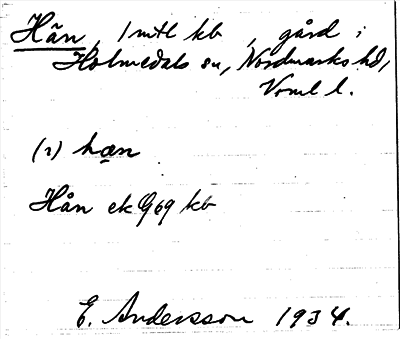 Hän, 1 mtl kb, gård i
Holmedals sn, Nordmarks hd,
Vrml l.
(1) hæn
Hån ek G69 kb
E. Andersson 1934.